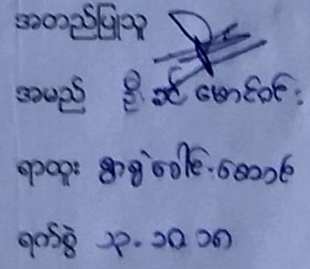 အတည်ပြုသူ
အမည် ဦးခင်မောင်ဝင်း
ရာထူး ရွာစွဲခေါင်းဆောင်
ရက်စွဲ ၁၃-၁၁-၁၈